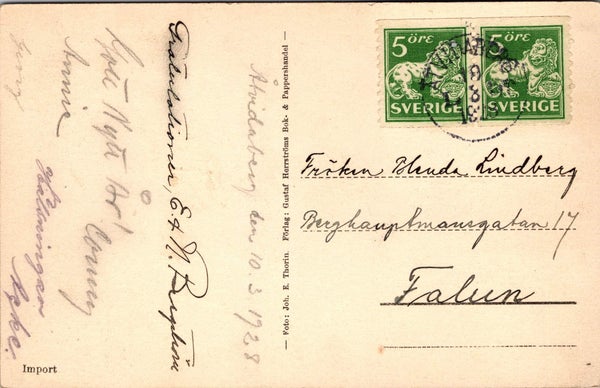 5 ÖRE
SVERIGE
5 ÖRE
SVERIGE
Fröken Blenda Lindberg
Berghauptmansgatan 17
Falun
— Foto: Joh. E. Thorin. Förlag: Gustaf Herrströms Bok- & Pappershandel —
Åtvidaberg den 10.3 1928
Gratulationer, E. & N.
Gott Nytt År!
Conny
Annie
Hälsningar
Import